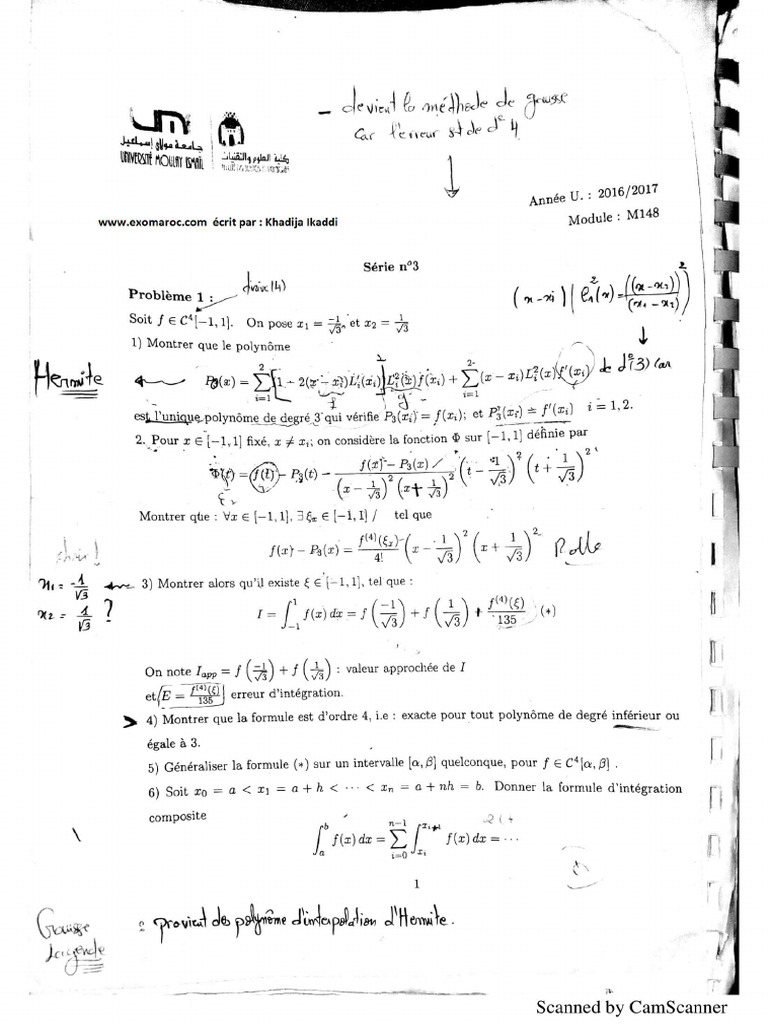 - devient la méthode de gausse
car l'erreur st de d° 4
جامعة مولاي إسماعيل
UNIVERSITÉ MOULAY ISMAÏL
كلية العلوم والتقنيات
Année U. : 2016/2017
Module : M148
www.exomaroc.com écrit par : Khadija Ikaddi
Série n°3
Problème 1 :
Soit f ∈ C⁴[−1, 1]. On pose x₁ = −1/√3, et x₂ = 1/√3
(x − xᵢ) | ℓ₁²(x) = ((x − x₂)/(x₁ − x₂))²
1) Montrer que le polynôme
Hermite
P₃(x) = Σᵢ₌₁² [1 − 2(x − xᵢ)L'ᵢ(xᵢ)]L²ᵢ(x)f(xᵢ) + Σᵢ₌₁² (x − xᵢ)L²ᵢ(x)f'(xᵢ) de d°(3) car
est l'unique polynôme de degré 3 qui vérifie P₃(xᵢ) = f(xᵢ); et P'₃(xᵢ) = f'(xᵢ) i = 1, 2.
2. Pour x ∈ [−1, 1] fixé, x ≠ xᵢ; on considère la fonction Φ sur [−1, 1] définie par
Φ(t) = f(t) − P₃(t) − (f(x) − P₃(x))/((x − 1/√3)² (x + 1/√3)²) (t − 1/√3)² (t + 1/√3)²
Montrer que : ∀x ∈ [−1, 1], ∃ ξₓ ∈ [−1, 1] / tel que
f(x) − P₃(x) = f⁽⁴⁾(ξₓ)/4! (x − 1/√3)² (x + 1/√3)² Rolle
x₁ = −1/√3
x₂ = 1/√3 ?
3) Montrer alors qu'il existe ξ ∈ [−1, 1], tel que :
I = ∫₋₁¹ f(x) dx = f(−1/√3) + f(1/√3) + f⁽⁴⁾(ξ)/135 (∗)
On note Iₐₚₚ = f(−1/√3) + f(1/√3) : valeur approchée de I
et E = f⁽⁴⁾(ξ)/135 erreur d'intégration.
4) Montrer que la formule est d'ordre 4, i.e : exacte pour tout polynôme de degré inférieur ou
égale à 3.
5) Généraliser la formule (∗) sur un intervalle [α, β] quelconque, pour f ∈ C⁴[α, β] .
6) Soit x₀ = a < x₁ = a + h < ⋯ < xₙ = a + nh = b. Donner la formule d'intégration
composite
∫ₐᵇ f(x) dx = Σᵢ₌₀ⁿ⁻¹ ∫ₓᵢˣⁱ⁺¹ f(x) dx = ⋯
1
Gausse
: provient des polynôme d'interpolation d'Hermite.
Scanned by CamScanner